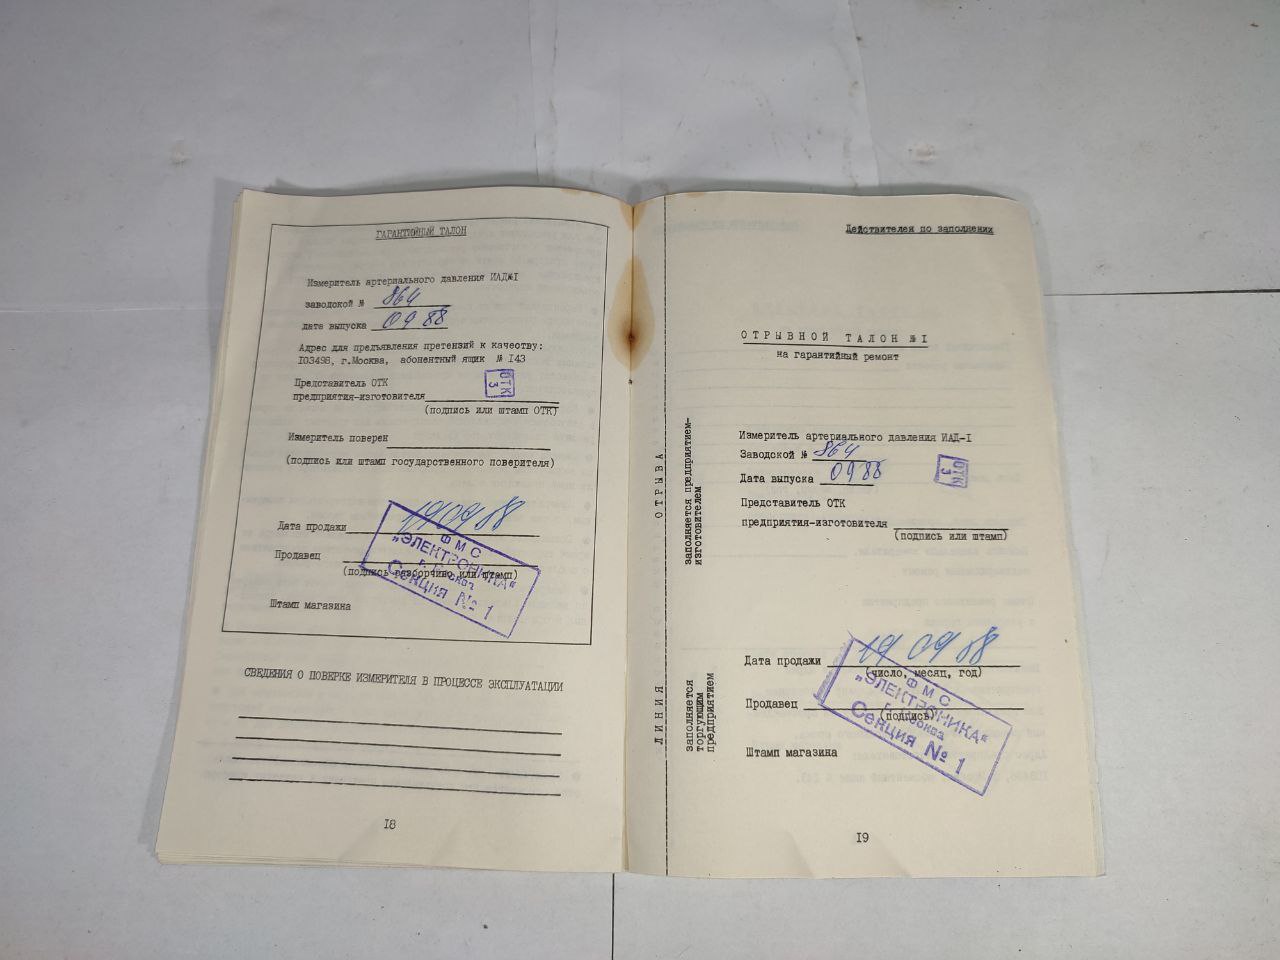 ГАРАНТИЙНЫЙ ТАЛОН
Измеритель артериального давления ИАД№I
заводской № 864
дата выпуска 09 88
Адрес для предъявления претензий к качеству:
I03498, г.Москва, абонентный ящик № I43
Представитель ОТК
предприятия-изготовителя
ОТК
3
(подпись или штамп ОТК)
Измеритель поверен
(подпись или штамп государственного поверителя)
Дата продажи 19 09 88
Продавец
(подпись разборчиво или штамп)
Штамп магазина
ФМС
„ЭЛЕКТРОНИКА“
г. Москва
Секция № 1
СВЕДЕНИЯ О ПОВЕРКЕ ИЗМЕРИТЕЛЯ В ПРОЦЕССЕ ЭКСПЛУАТАЦИИ
I8
ЛИНИЯ ОТРЫВА
заполняется предприятием-
изготовителем
заполняется
торгующим
предприятием
Действителен по заполнении
ОТРЫВНОЙ ТАЛОН №I
на гарантийный ремонт
Измеритель артериального давления ИАД-I
Заводской № 864
Дата выпуска 09 88
ОТК
3
Представитель ОТК
предприятия-изготовителя
(подпись или штамп)
Дата продажи 19 09 88
(число, месяц, год)
Продавец
(подпись)
Штамп магазина
ФМС
„ЭЛЕКТРОНИКА“
г. Москва
Секция № 1
I9